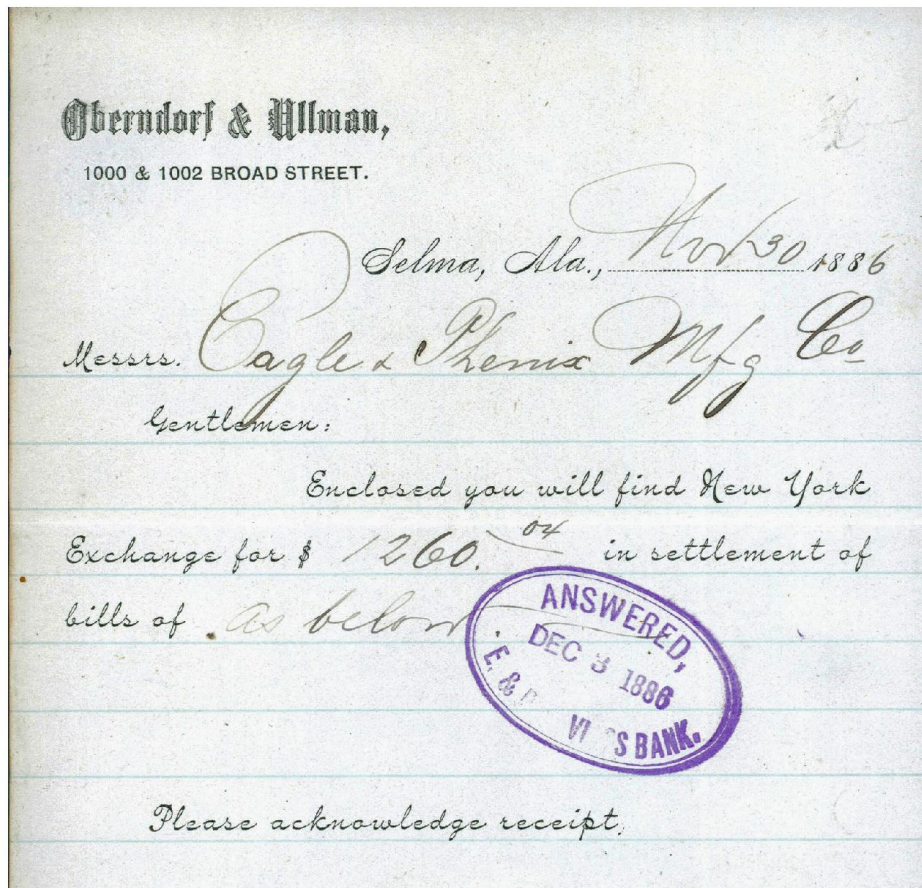 Oberndorf & Ullman,
1000 & 1002 BROAD STREET.
Selma, Ala., Nov 30 1886
Messrs. Eagle & Phenix Mfg Co
Gentlemen:
Enclosed you will find New York
Exchange for $ 1260.04 in settlement of
bills of as below
ANSWERED,
DEC 3 1886
E. & P. SBANK.
Please acknowledge receipt.